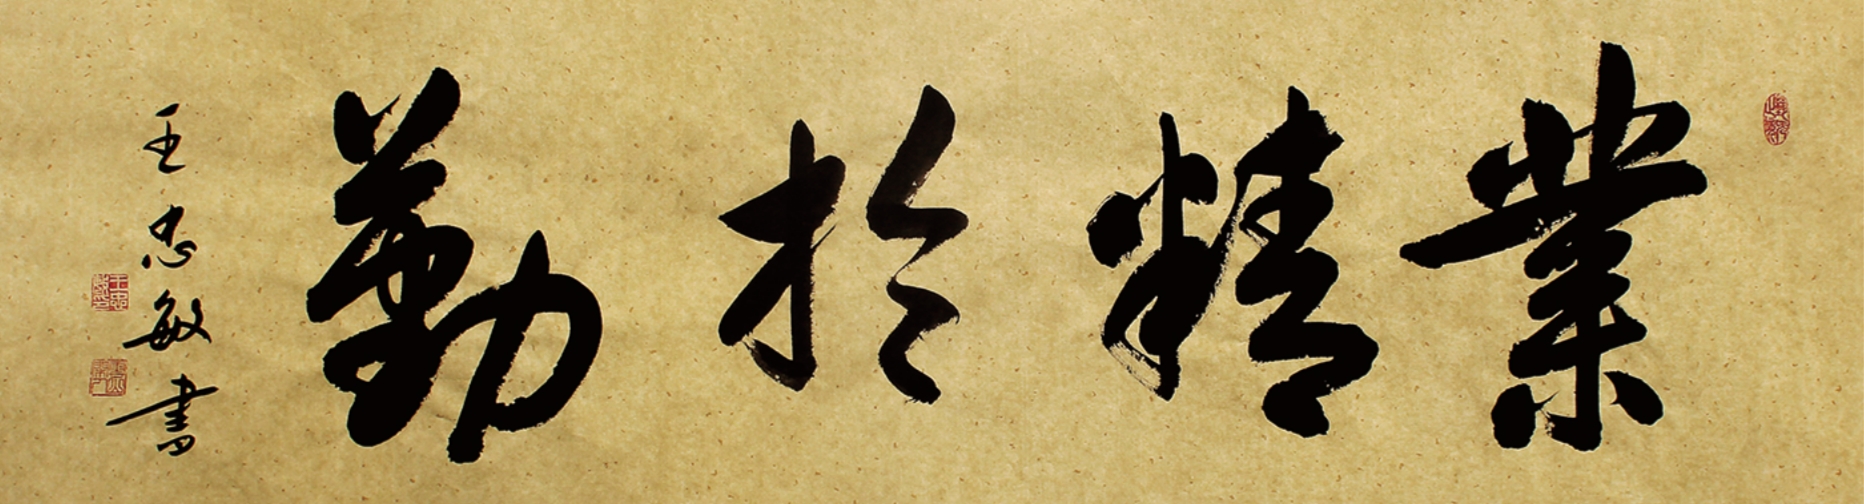 業精於勤
王忠敏書